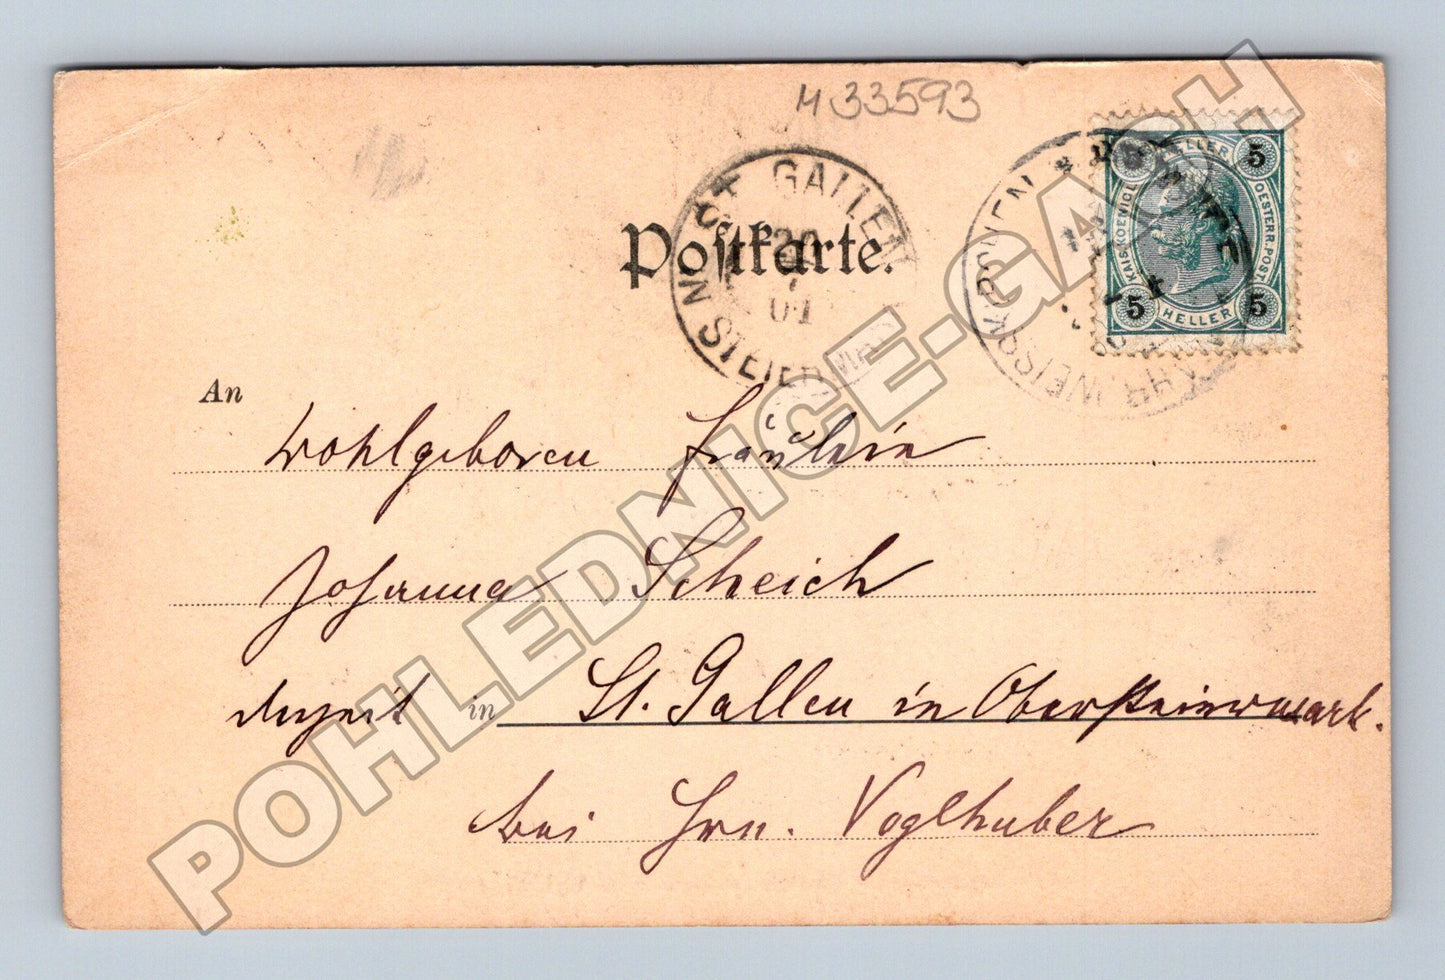 M 33593
ST GALLEN
IN STEIER
01
WEISSKIRCHEN
5 HELLER 5
KAIS. KOENIGL.
OESTERR. POST
5 HELLER 5
Postkarte.
An
Wohlgeboren Fräulein
Johanna Scheich
derzeit in St. Gallen in Obersteiermark.
bei Hrn. Voglhuber
POHLEDNICE-GASH